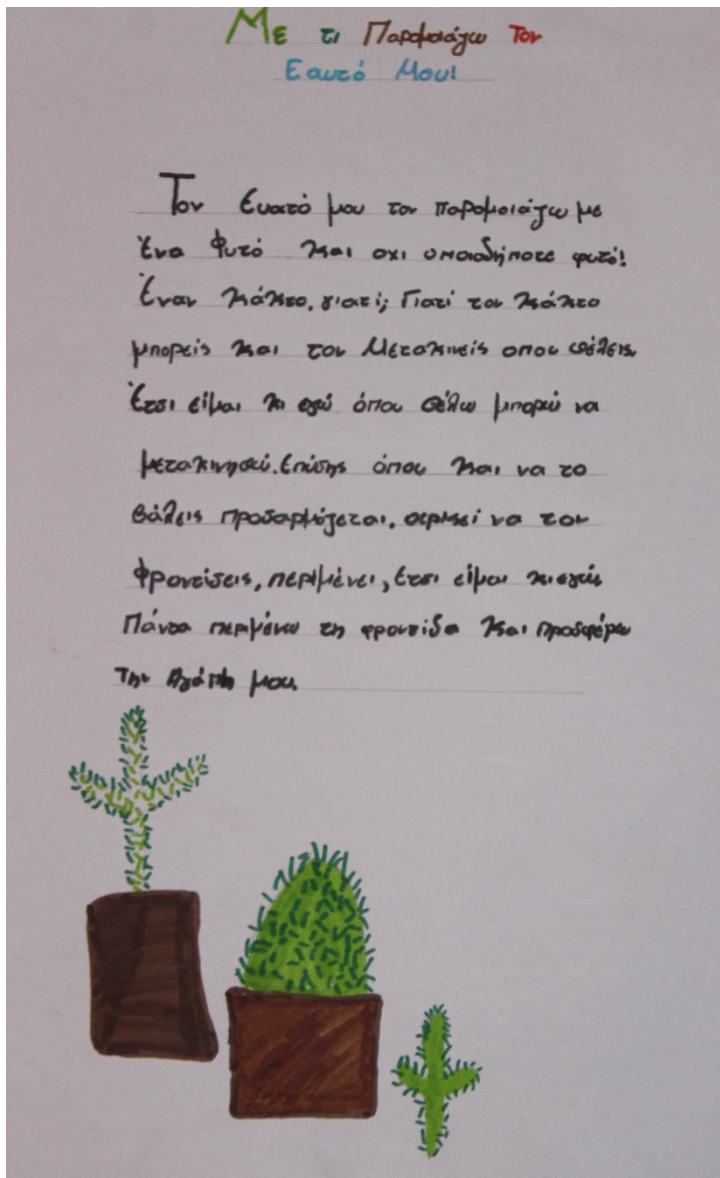 Με τι Παρομοιάζω Τον
Εαυτό Μου!
Τον Ευατό μου τον παρομοιάζω με
Ένα Φυτό και οχι οποιοδήποτε φυτό!
Έναν κάκτο, γιατί; Γιατί τον κάκτο
μπορείς και τον Μετακινείς οπου θέλεις.
Έτσι είμαι κι εγώ όπου θέλω μπορώ να
μετακινηθώ. Επίσης όπου και να το
βάλεις προσαρμόζεται, αρκεί να τον
Φροντίσεις, περιμένει, έτσι είμαι κι εγώ
Πάντα περιμένω τη φροντίδα και προσφέρω
Την Αγάπη μου.